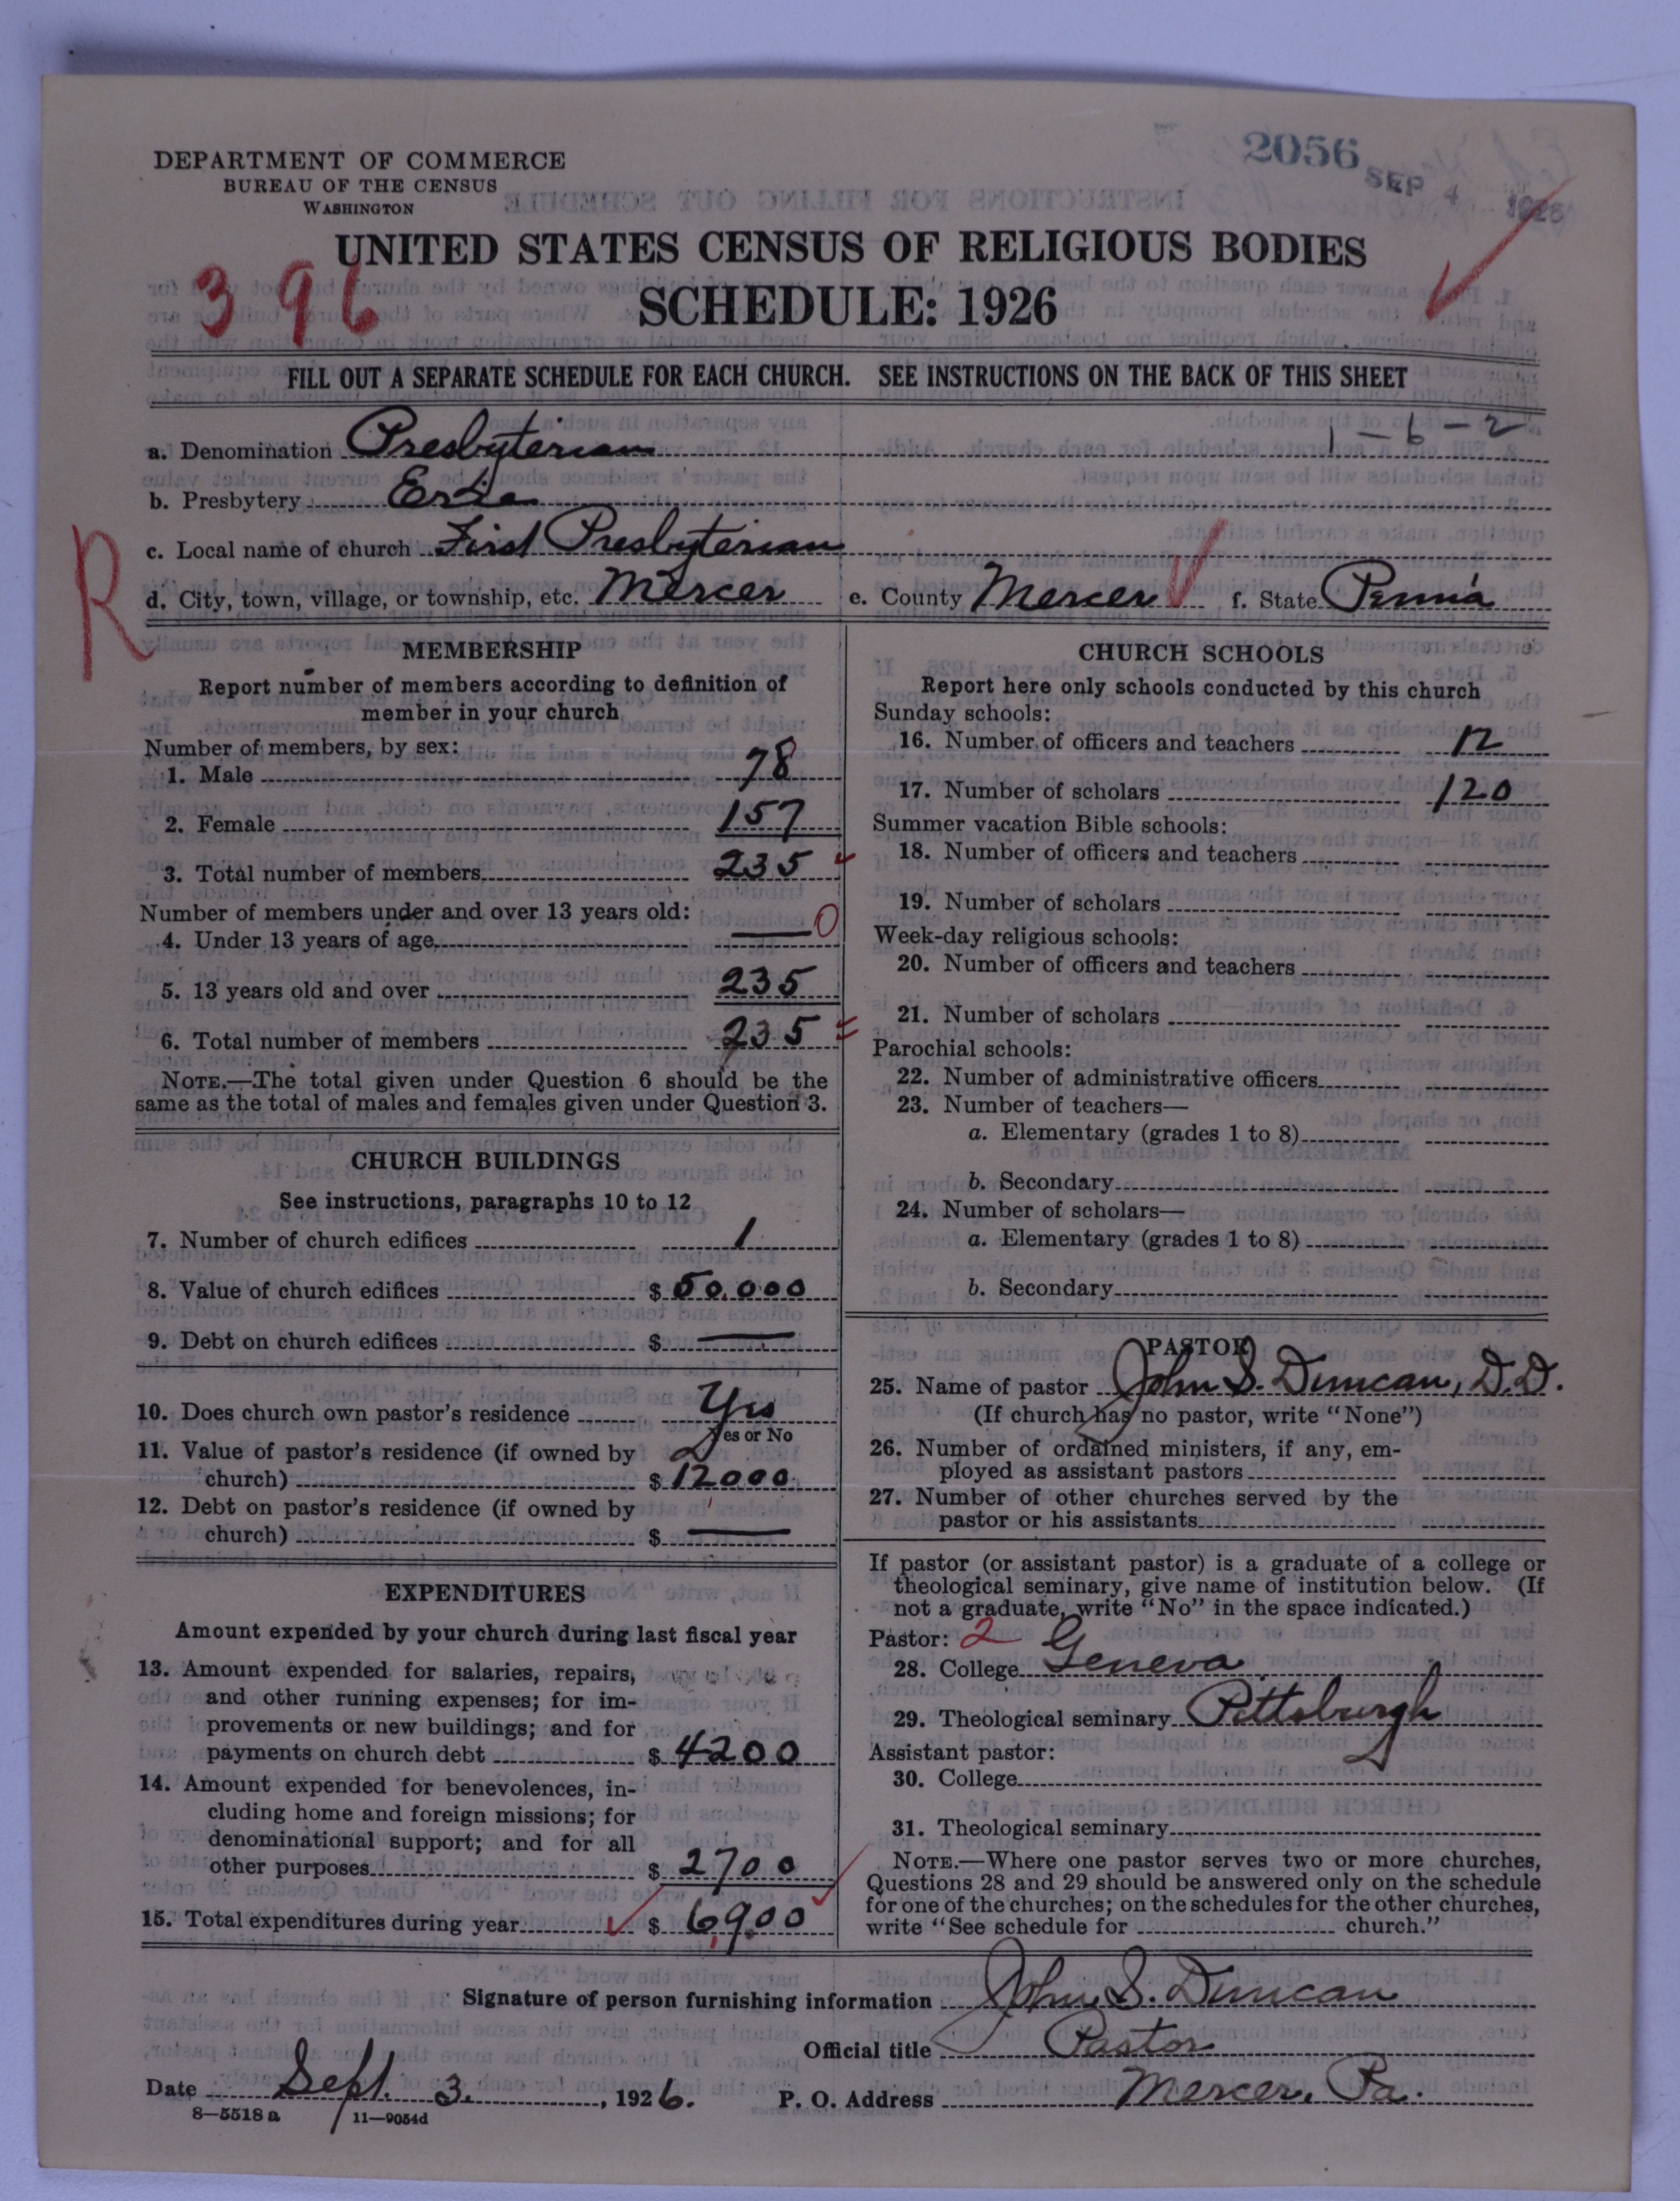 2056
SEP 4 1926
DEPARTMENT OF COMMERCE
BUREAU OF THE CENSUS
WASHINGTON
UNITED STATES CENSUS OF RELIGIOUS BODIES
396
SCHEDULE: 1926
FILL OUT A SEPARATE SCHEDULE FOR EACH CHURCH. SEE INSTRUCTIONS ON THE BACK OF THIS SHEET
1-6-2
a. Denomination Presbyterian
b. Presbytery Erie
c. Local name of church First Presbyterian
R
d. City, town, village, or township, etc. Mercer e. County Mercer f. State Penn'a
MEMBERSHIP
Report number of members according to definition of
member in your church
Number of members, by sex:
1. Male 78
2. Female 157
3. Total number of members 235
Number of members under and over 13 years old:
4. Under 13 years of age — 0
5. 13 years old and over 235
6. Total number of members 235
NOTE.—The total given under Question 6 should be the
same as the total of males and females given under Question 3.
CHURCH BUILDINGS
See instructions, paragraphs 10 to 12
7. Number of church edifices 1
8. Value of church edifices $ 50,000
9. Debt on church edifices $ —
10. Does church own pastor's residence Yes
Yes or No
11. Value of pastor's residence (if owned by
church) $ 12000
12. Debt on pastor's residence (if owned by
church) $ —
EXPENDITURES
Amount expended by your church during last fiscal year
13. Amount expended for salaries, repairs,
and other running expenses; for im-
provements or new buildings; and for
payments on church debt $ 4200
14. Amount expended for benevolences, in-
cluding home and foreign missions; for
denominational support; and for all
other purposes $ 2700
15. Total expenditures during year $ 6900
CHURCH SCHOOLS
Report here only schools conducted by this church
Sunday schools:
16. Number of officers and teachers 12
17. Number of scholars 120
Summer vacation Bible schools:
18. Number of officers and teachers
19. Number of scholars
Week-day religious schools:
20. Number of officers and teachers
21. Number of scholars
Parochial schools:
22. Number of administrative officers
23. Number of teachers—
a. Elementary (grades 1 to 8)
b. Secondary
24. Number of scholars—
a. Elementary (grades 1 to 8)
b. Secondary
PASTOR
25. Name of pastor John S. Duncan, D.D.
(If church has no pastor, write "None")
26. Number of ordained ministers, if any, em-
ployed as assistant pastors
27. Number of other churches served by the
pastor or his assistants
If pastor (or assistant pastor) is a graduate of a college or
theological seminary, give name of institution below. (If
not a graduate, write "No" in the space indicated.)
Pastor: 2
28. College Geneva
29. Theological seminary Pittsburgh
Assistant pastor:
30. College
31. Theological seminary
NOTE.—Where one pastor serves two or more churches,
Questions 28 and 29 should be answered only on the schedule
for one of the churches; on the schedules for the other churches,
write "See schedule for church."
Signature of person furnishing information John S. Duncan
Official title Pastor
Date Sept. 3, 1926. P. O. Address Mercer, Pa.
8—5518 a 11—9054d